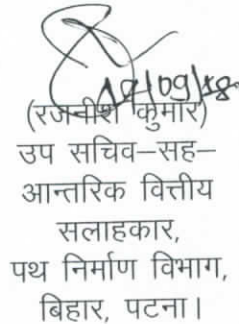 19/09/18
(रजनीश कुमार)
उप सचिव–सह–
आन्तरिक वित्तीय
सलाहकार,
पथ निर्माण विभाग,
बिहार, पटना।